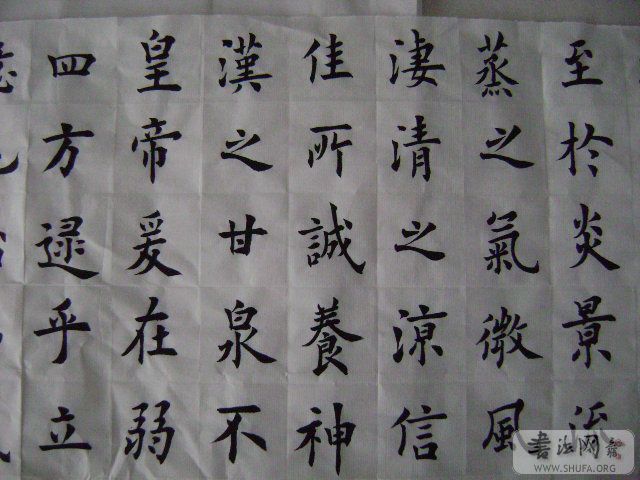 至於炎景流
蒸之氣微風
淒清之涼信
佳所誠養神
漢之甘泉不
皇帝爰在弱
四方逯乎立
书法网
WWW.SHUFA.ORG